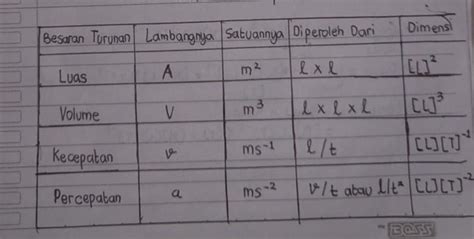 Besaran Turunan Lambangnya Satuannya Diperoleh Dari Dimensi
Luas A m² l x l [L]²
Volume V m³ l x l x l [L]³
Kecepatan v ms⁻¹ l/t [L][T]⁻¹
Percepatan a ms⁻² v/t atau l/t² [L][T]⁻²
BOSS